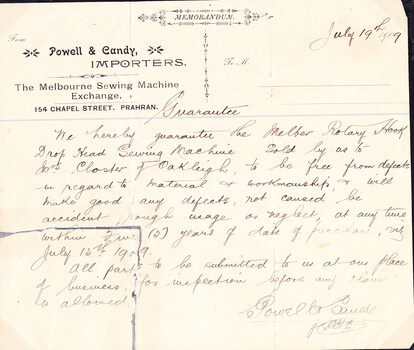 MEMORANDUM.
July 19th 1909
From
Powell & Candy,
IMPORTERS.
To M
The Melbourne Sewing Machine
Exchange,
154 CHAPEL STREET, PRAHRAN.
Guarantee
We hereby guarantee the Melber Rotary Hook
Drop Head Sewing Machine Sold by us to
Mrs Closter of Oakleigh, to be free from defects
in regard to material & workmanship, & will
make good any defects, not caused be
accident rough usage or neglect, at any time
within five (5) years of date of purchase, viz
July 15th 1909.
All parts to be submitted to us at our place
of business, for inspection before any claim
is allowed.
Powell & Candy